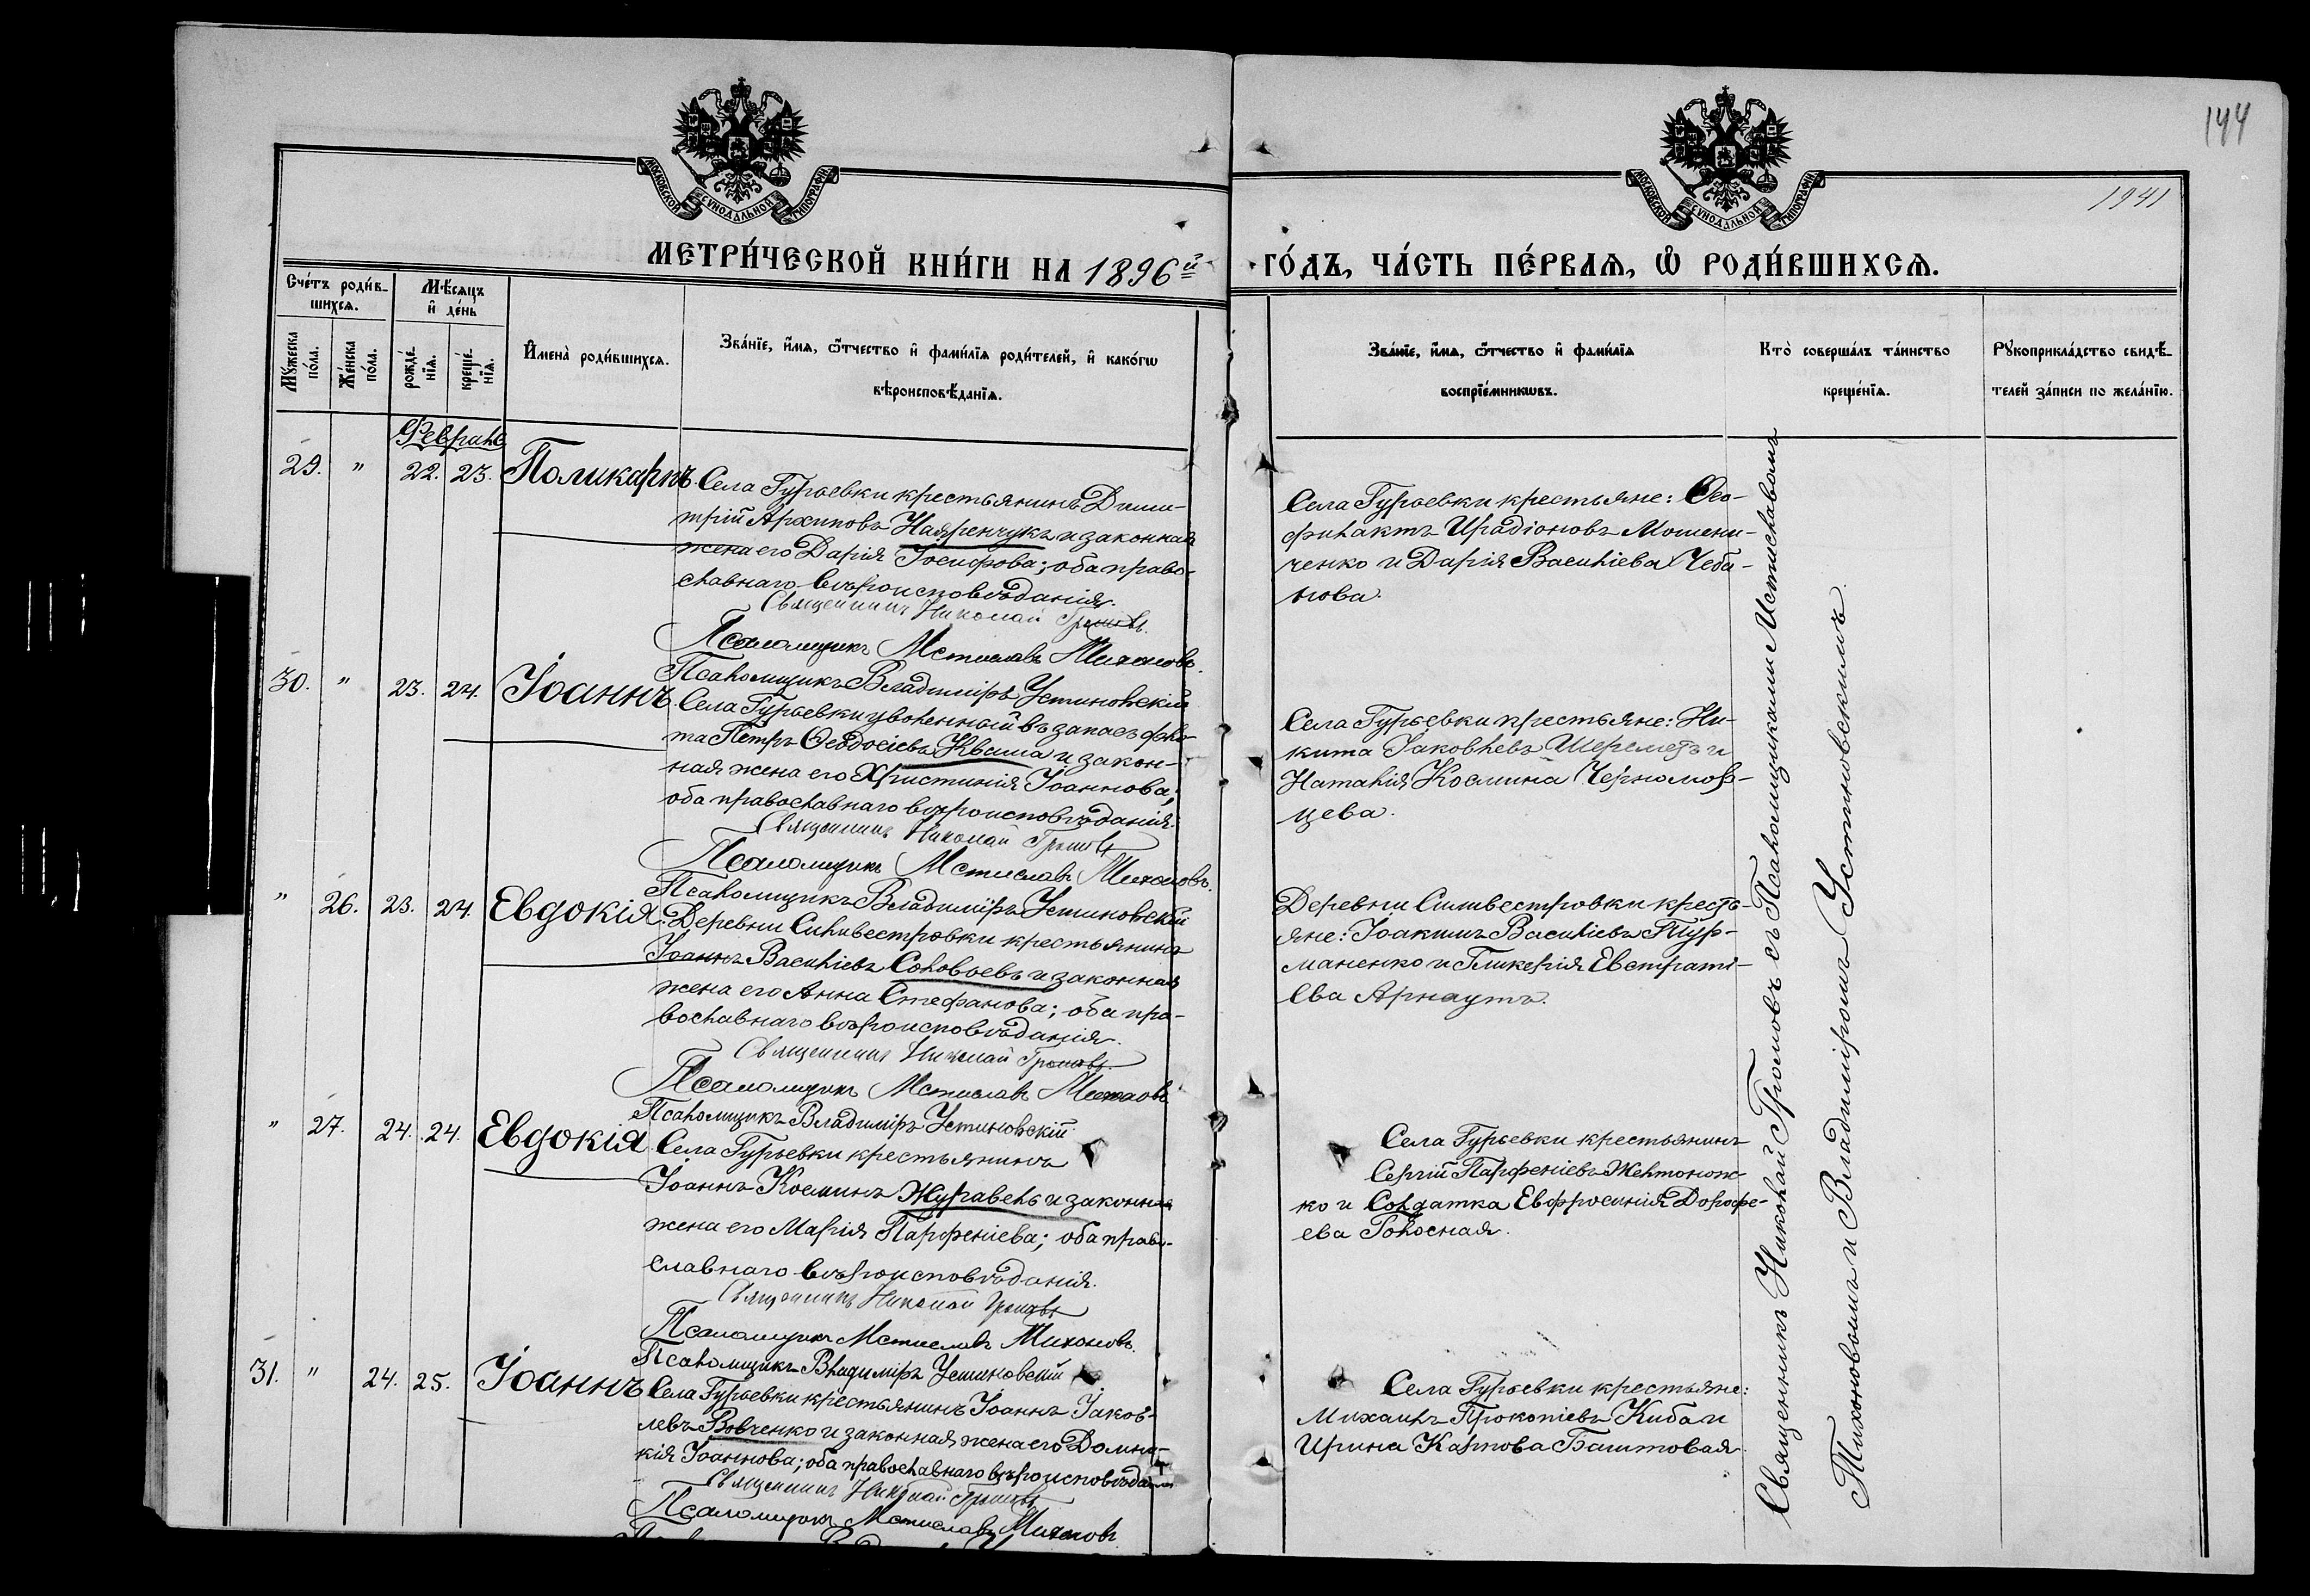 144
1941
МОСКОВСКОЙ СУНОДАЛЬНОЙ ТИПОГРАФІИ
МОСКОВСКОЙ СУНОДАЛЬНОЙ ТИПОГРАФІИ
МЕТРИ́ЧЕСКОЙ КНИ́ГИ НА 1896й ГО́ДЪ, ЧА́СТЬ ПЕ́РВАѦ, Ѡ҆ РОДИ́ВШИХСѦ.
Сче́тъ роди́в-
шихсѧ.
Мѣ́сѧцъ
и҆ де́нь
Мꙋ́жеска
по́ла.
Же́нска
по́ла.
рожде́-
нїѧ.
креще́-
нїѧ.
И҆мена̀ роди́вшихсѧ.
Зва́нїе, и҆́мѧ, ѻ҆́тчество и҆ фами́лїѧ роди́телей, и҆ како́гѡ
вѣроисповѣ́данїѧ.
Зва́нїе, и҆́мѧ, ѻ҆́тчество и҆ фами́лїѧ
воспрїе́мникѡвъ.
Кто̀ соверша́лъ та́инство
креще́нїѧ.
Рꙋкоприкла́дство свидѣ́-
телей за́писи по жела́нїю.
Февраль
29. " 22. 23. Поликарпъ. Села Гурьевки крестьянинъ Дими-
трій Архиповъ Найренчукъ и законная
жена его Дарія Іосифова; оба право-
славнаго вѣроисповѣданія.
Священникъ Николай Громовъ.
Псаломщикъ Мстиславъ Тихоновъ.
Псаломщикъ Владиміръ Устиновскій
Села Гурьевки крестьяне: Ѳео-
филактъ Иродіоновъ Мошени-
ченко и Дарія Василіева Чеба-
нова.
30. " 23. 24. Іоаннъ. Села Гурьевки уволенный въ запасъ фло-
та Петръ Ѳеодосіевъ Кваша и закон-
ная жена его Христинія Іоаннова;
оба православнаго вѣроисповѣданія.
Священникъ Николай Громовъ
Псаломщикъ Мстиславъ Тихоновъ.
Псаломщикъ Владиміръ Устиновскій
Села Гурьевки крестьяне: Ни-
кита Іаковлевъ Шереметъ и
Наталія Космина Черномор-
цева.
" 26. 23. 24. Евдокія. Деревни Сильвестровки крестьянинъ
Іоаннъ Василіевъ Соловьевъ и законная
жена его Анна Стефанова; оба пра-
вославнаго вѣроисповѣданія.
Священникъ Николай Громовъ.
Псаломщикъ Мстиславъ Тихоновъ
Псаломщикъ Владиміръ Устиновскій
Деревни Сильвестровки кресть-
яне: Іоакимъ Василіевъ Тур-
маненко и Гликерія Евстраті-
ева Арнаутъ.
" 27. 24. 24. Евдокія Села Гурьевки крестьянинъ
Іоаннъ Косминъ Журавель и законная
жена его Марія Парѳеніева; оба право-
славнаго вѣроисповѣданія.
Священникъ Николай Громовъ
Псаломщикъ Мстиславъ Тихоновъ.
Псаломщикъ Владиміръ Устиновскій
Села Гурьевки крестьянинъ
Сергій Парфеніевъ Желтонож-
ко и Солдатка Евфросинія Дорофе-
ева Голосная.
31. " 24. 25. Іоаннъ Села Гурьевки крестьянинъ Іоаннъ Іаков-
левъ Вовченко и законная жена его Домни-
кія Іоаннова; оба православнаго вѣроисповѣданія
Священникъ Николай Громовъ
Псаломщикъ Мстиславъ Тихоновъ
Села Гурьевки крестьяне:
Михаилъ Прокопіевъ Киба и
Ирина Карпова Баштовая.
Священникъ Николай Громовъ съ Псаломщиками Мстиславомъ
Тихоновымъ и Владиміромъ Устиновскимъ.